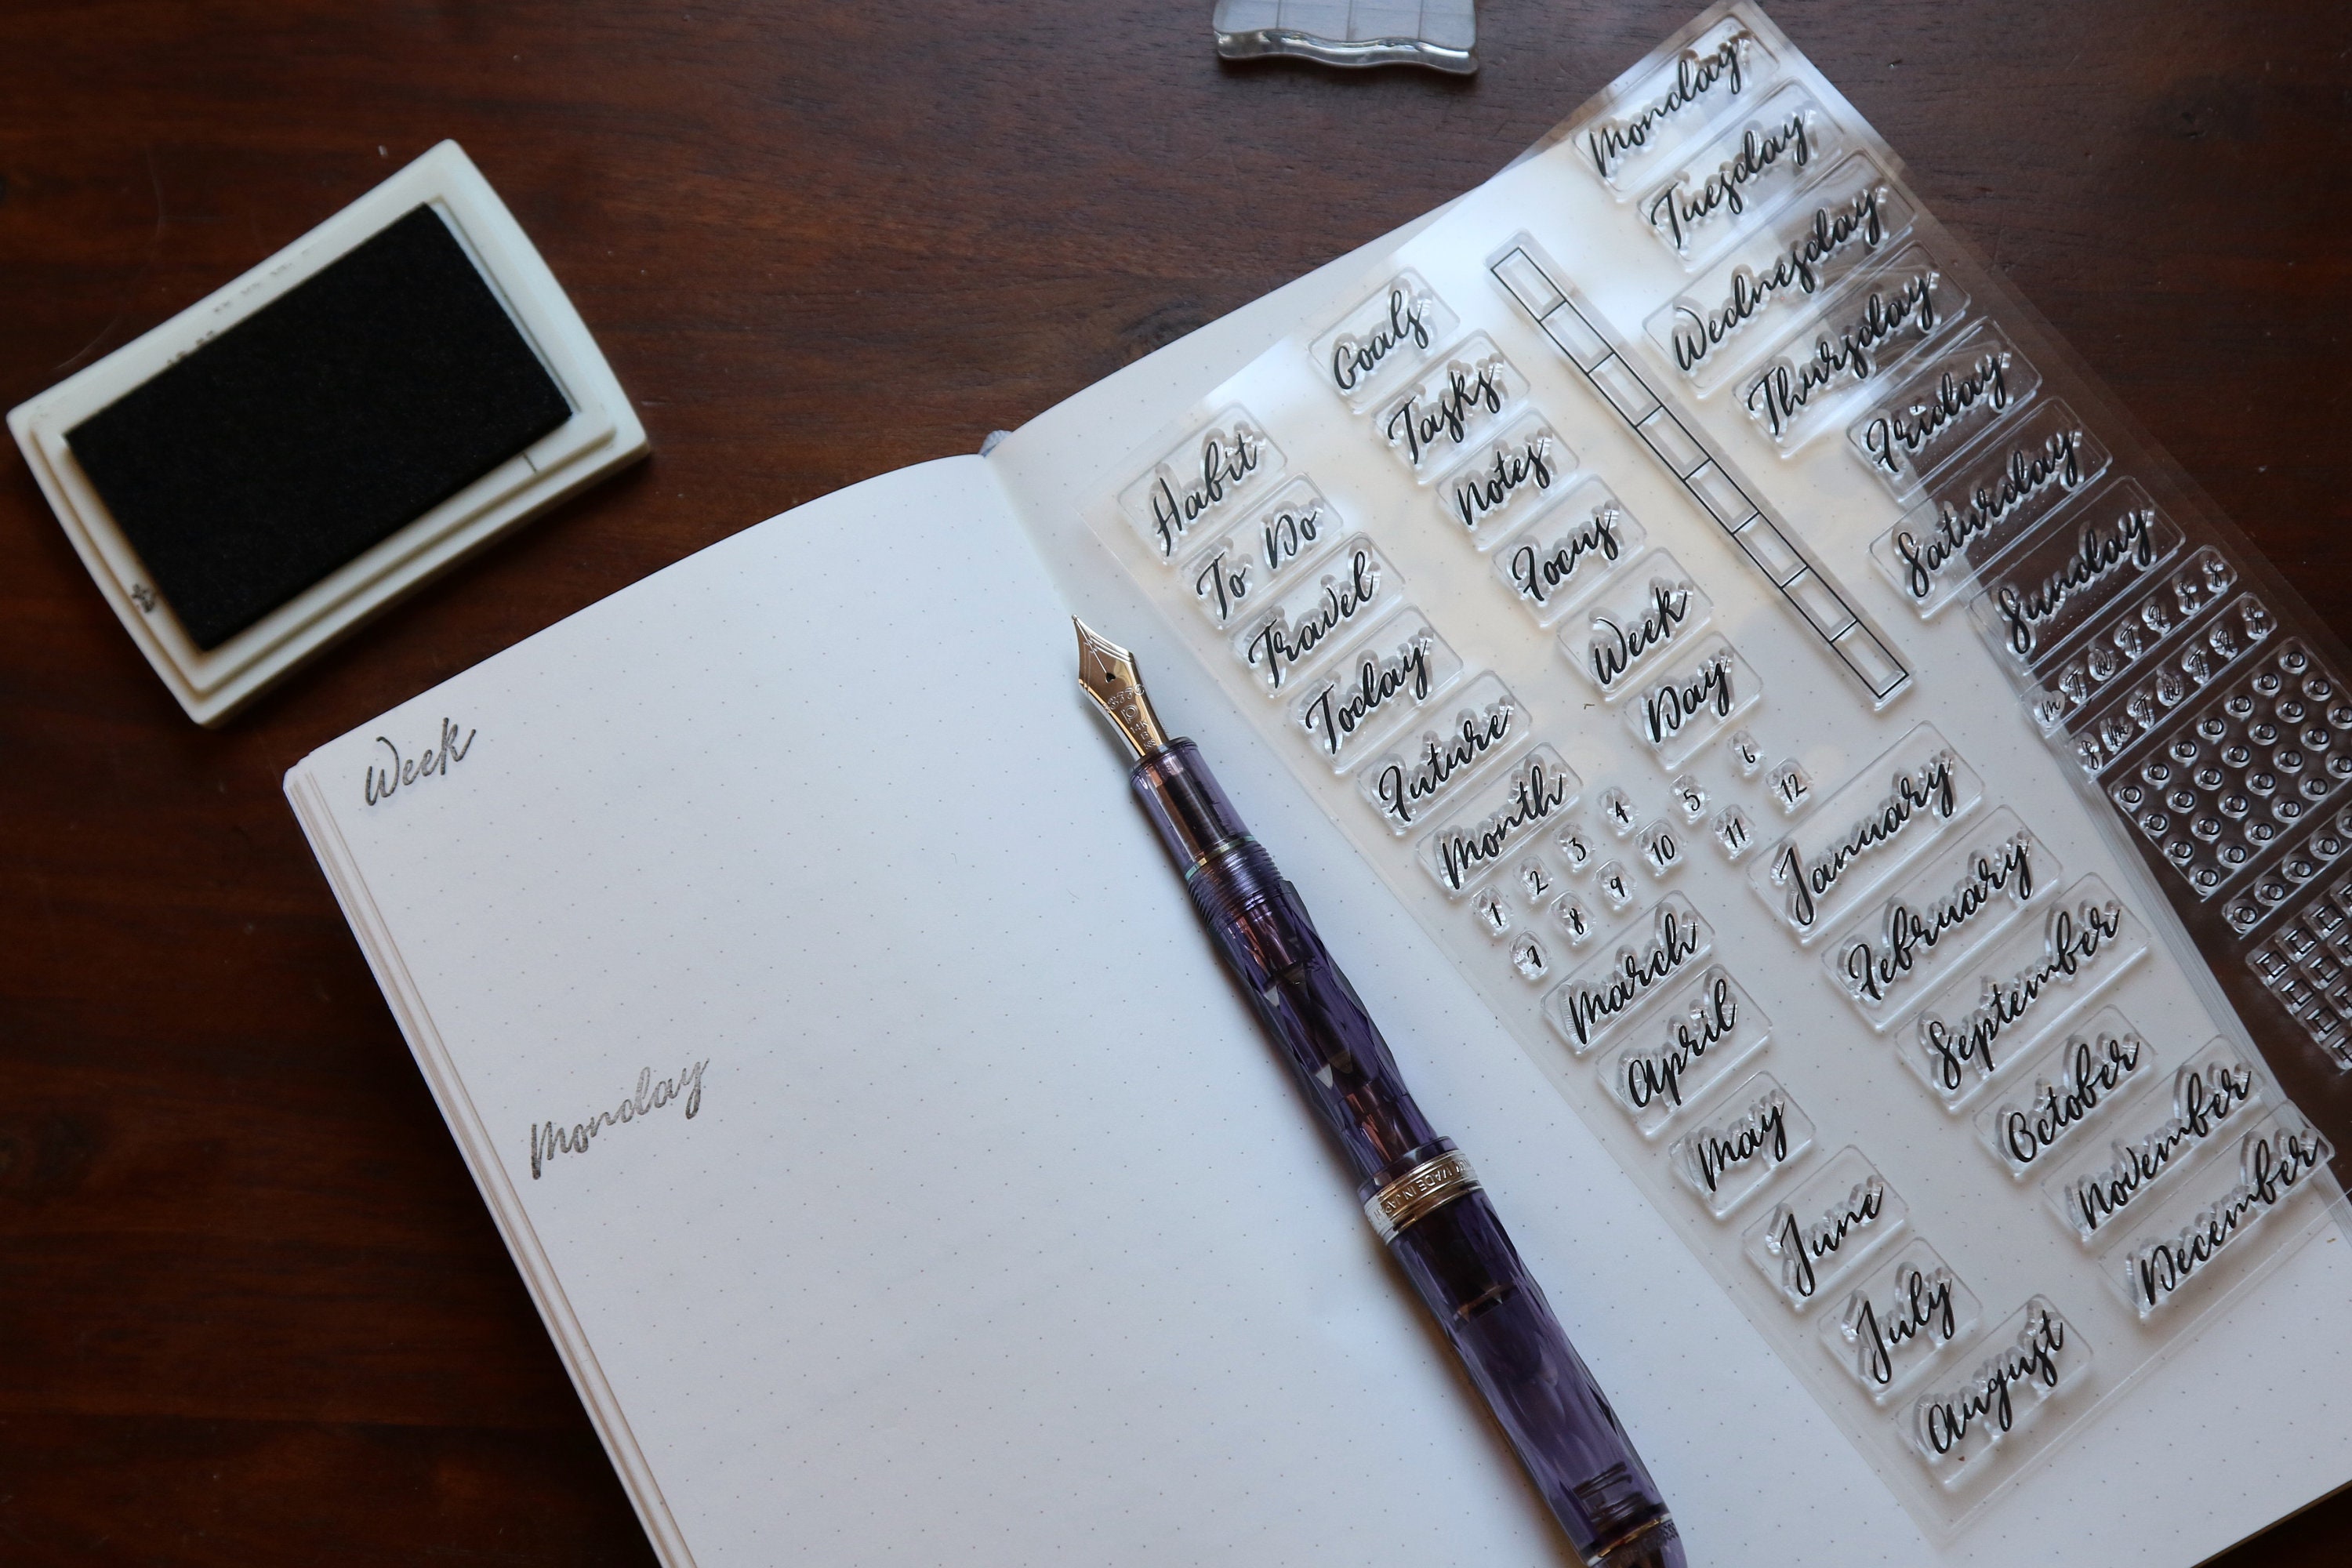 Week
Monday
Habit
To Do
Travel
Today
Future
Month
Goals
Tasks
Notes
Focus
Week
Day
1 2 3 4 5 6
7 8 9 10 11 12
Monday
Tuesday
Wednesday
Thursday
Friday
Saturday
Sunday
M T W T F S S
S M T W T F S
March
April
May
June
July
August
January
February
September
October
November
December
3776
MADE IN JAPAN